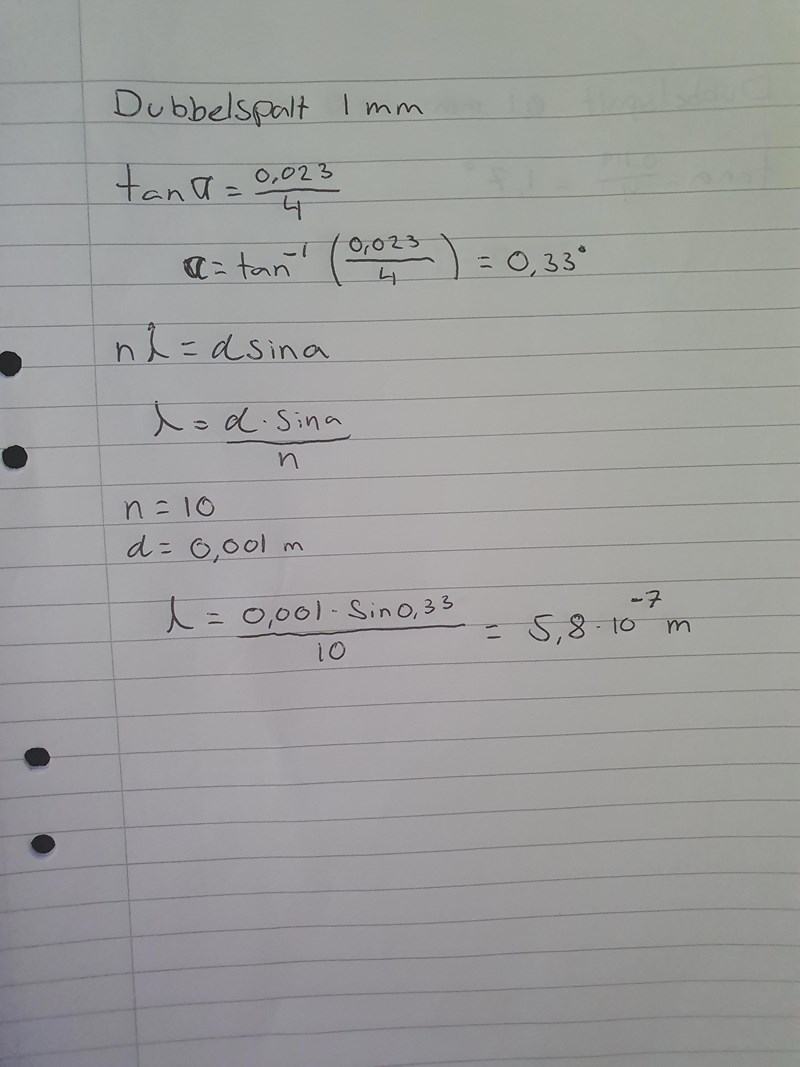 Dubbelspalt 1 mm
tan α = 0,023/4
α = tan⁻¹ (0,023/4) = 0,33°
nλ = d sin α
λ = d · sin α / n
n = 10
d = 0,001 m
λ = 0,001 · sin 0,33 / 10 = 5,8 · 10⁻⁷ m